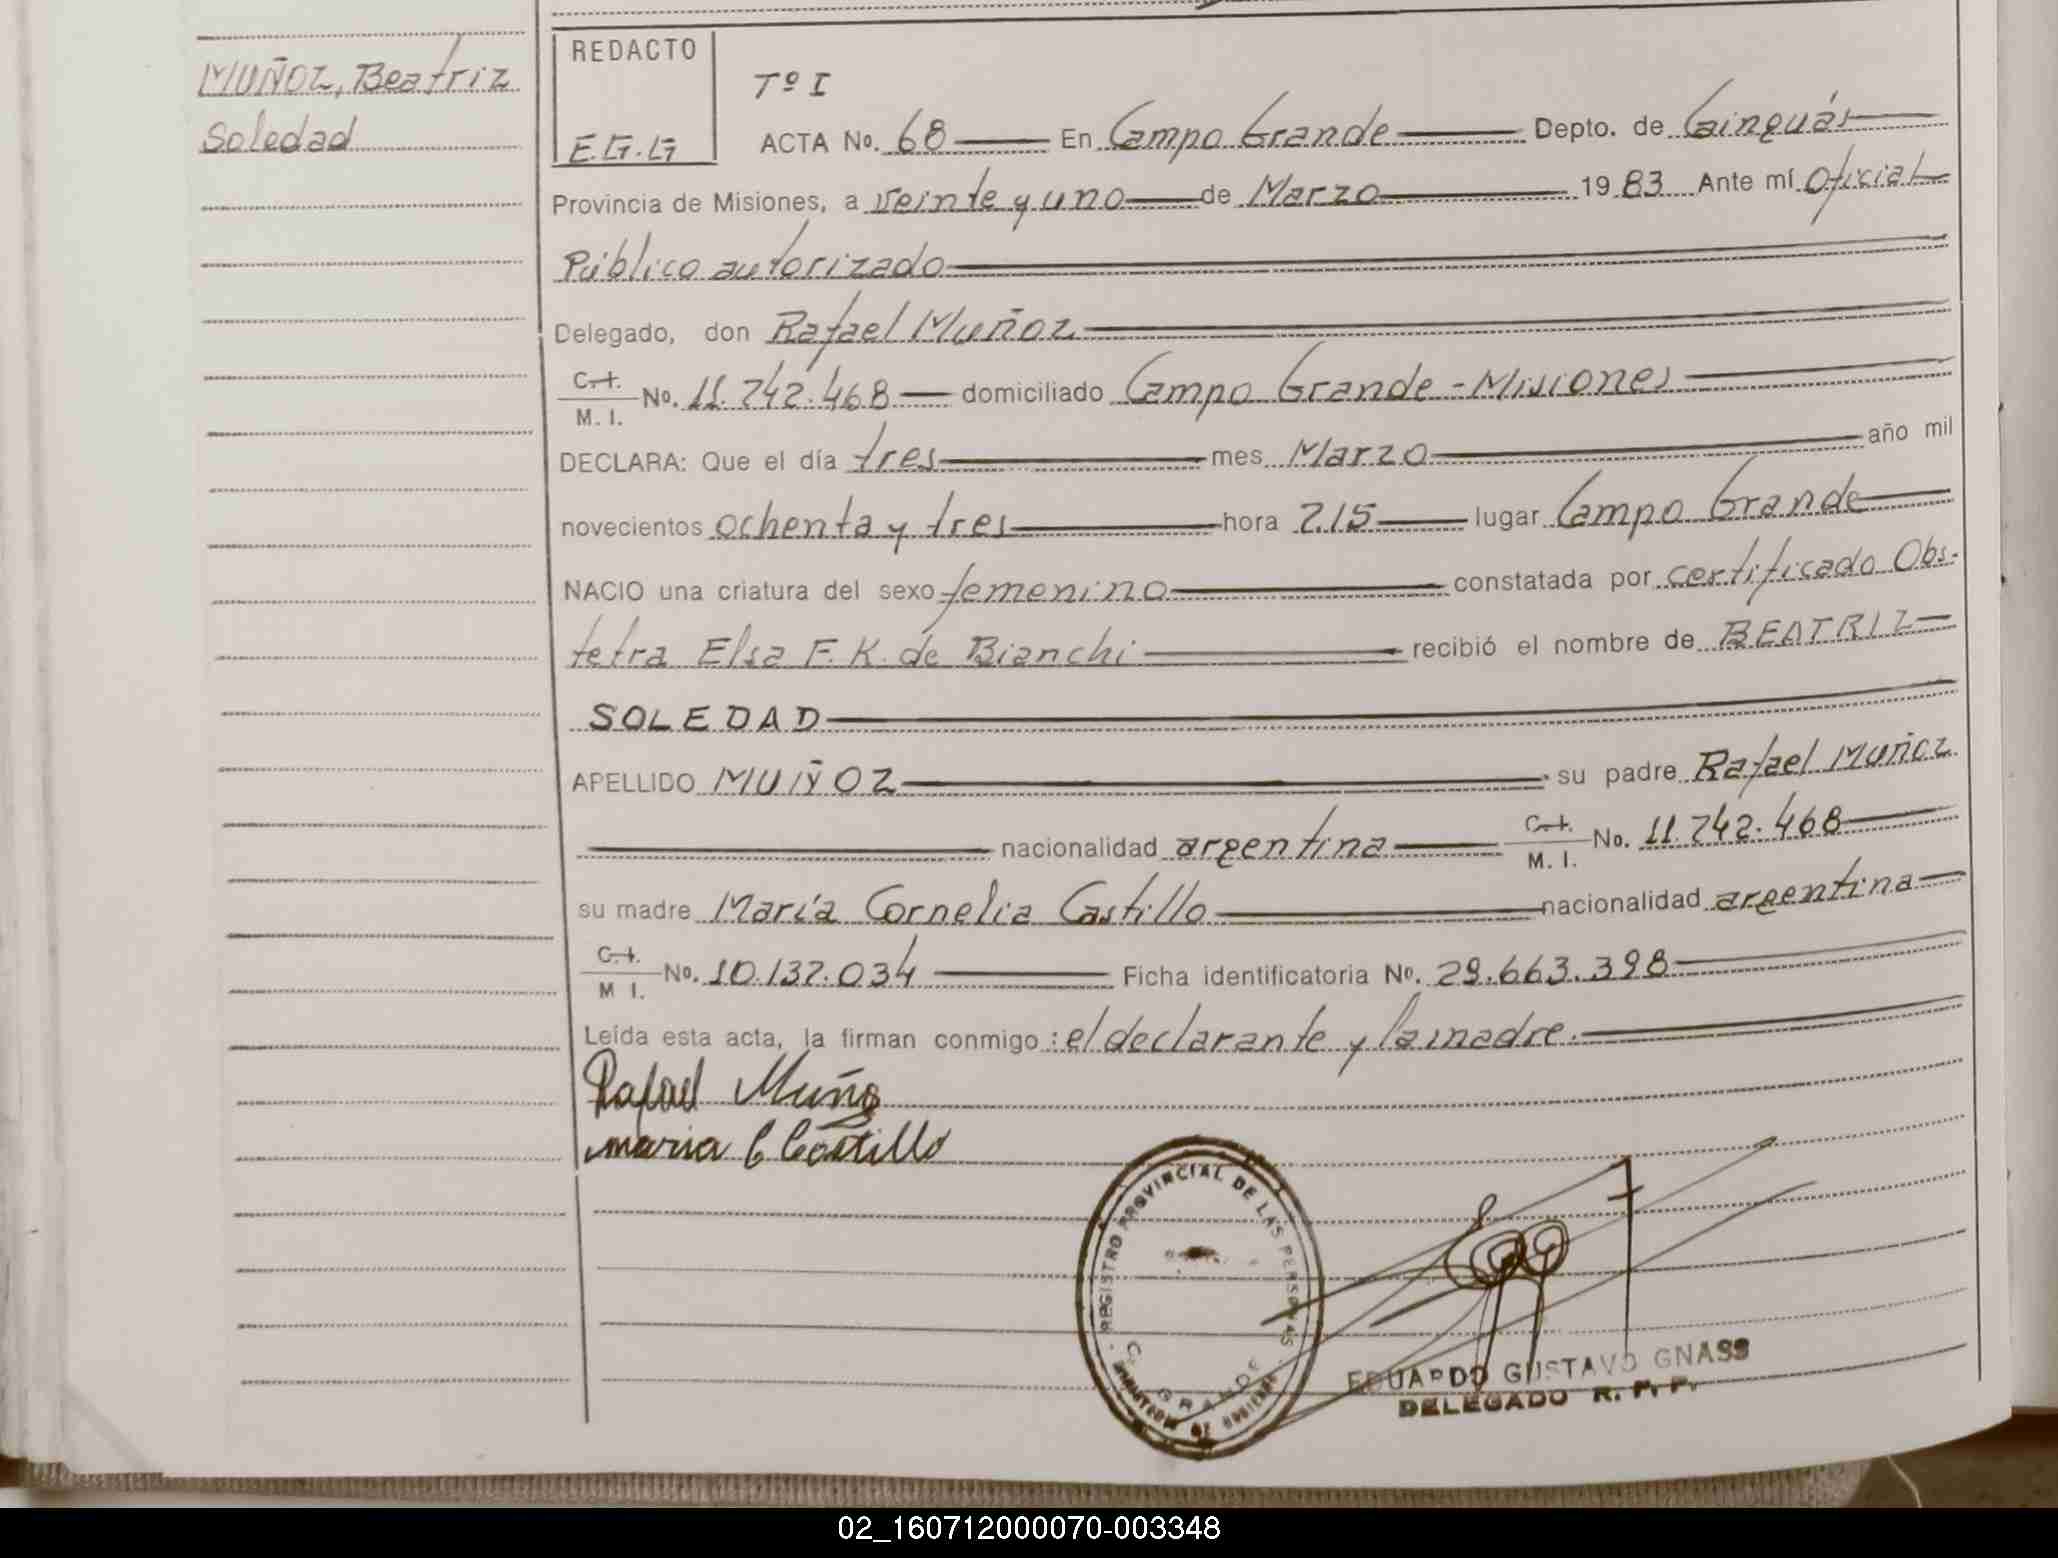 MUÑOZ, Beatriz
Soledad
REDACTO
E.G.G
Tº I
ACTA No. 68 En Campo Grande Depto. de Cainguás
Provincia de Misiones, a veinte y uno de Marzo 1983 Ante mí Oficial
Público autorizado
Delegado, don Rafael Muñoz
C.I.
M. I. No. 11.742.468 domiciliado Campo Grande - Misiones
DECLARA: Que el día tres mes Marzo año mil
novecientos ochenta y tres hora 7.15 lugar Campo Grande
NACIO una criatura del sexo femenino constatada por certificado Obs-
tetra Elsa F. K. de Bianchi recibió el nombre de BEATRIZ
SOLEDAD
APELLIDO MUÑOZ su padre Rafael Muñoz
nacionalidad argentina C.I.
M. I. No. 11.742.468
su madre María Cornelia Castillo nacionalidad argentina
C.I.
M I. No. 10.137.034 Ficha identificatoria No. 29.663.398
Leída esta acta, la firman conmigo: el declarante y la madre.
Rafael Muñoz
maria C Castillo
REGISTRO PROVINCIAL DE LAS PERSONAS
C. GRANDE
MINISTERIO DE GOBIERNO
EDUARDO GUSTAVO GNASS
DELEGADO R. P. P.
02_160712000070-003348